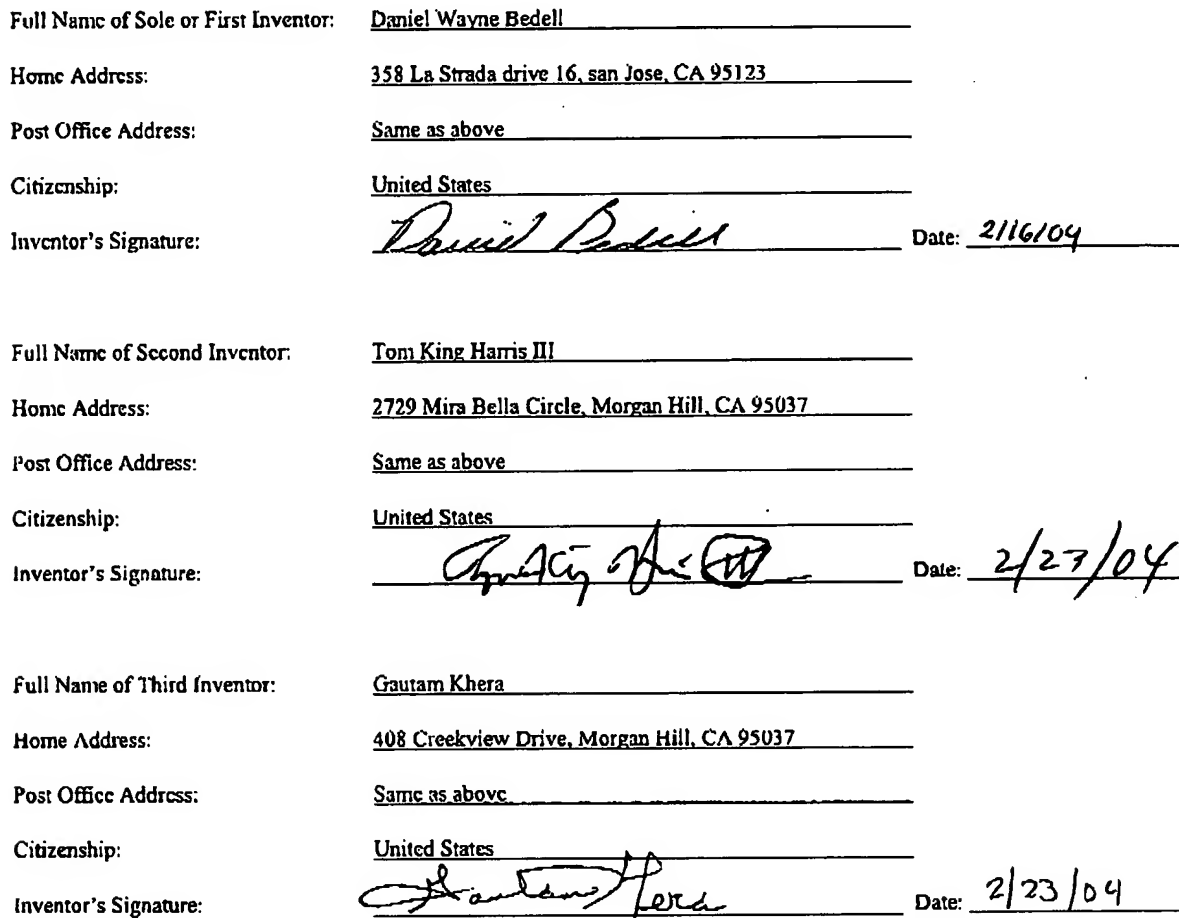 Full Name of Sole or First Inventor: Daniel Wayne Bedell
Home Address: 358 La Strada drive 16, san Jose, CA 95123
Post Office Address: Same as above
Citizenship: United States
Inventor's Signature: Daniel Bedell Date: 2/16/04
Full Name of Second Inventor: Tom King Harris III
Home Address: 2729 Mira Bella Circle, Morgan Hill, CA 95037
Post Office Address: Same as above
Citizenship: United States
Inventor's Signature: III Date: 2/23/04
Full Name of Third Inventor: Gautam Khera
Home Address: 408 Creekview Drive, Morgan Hill, CA 95037
Post Office Address: Same as above
Citizenship: United States
Inventor's Signature: Gautam Khera Date: 2/23/04